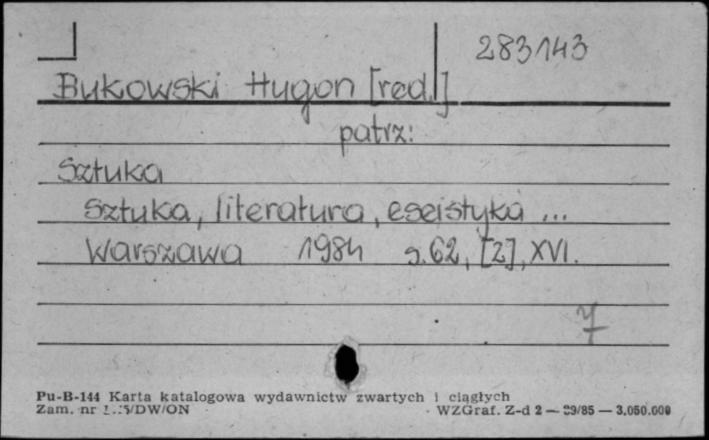 283143
Bukowski Hugon [red.]
patrz:
Sztuka
Sztuka, literatura, eseistyka ...
Warszawa 1984 s. 62, [2], XVI.
7
Pu-B-144 Karta katalogowa wydawnictw zwartych i ciągłych
Zam. nr /DW/ON WZGraf. Z-d 2 — 29/85 — 3.050.000